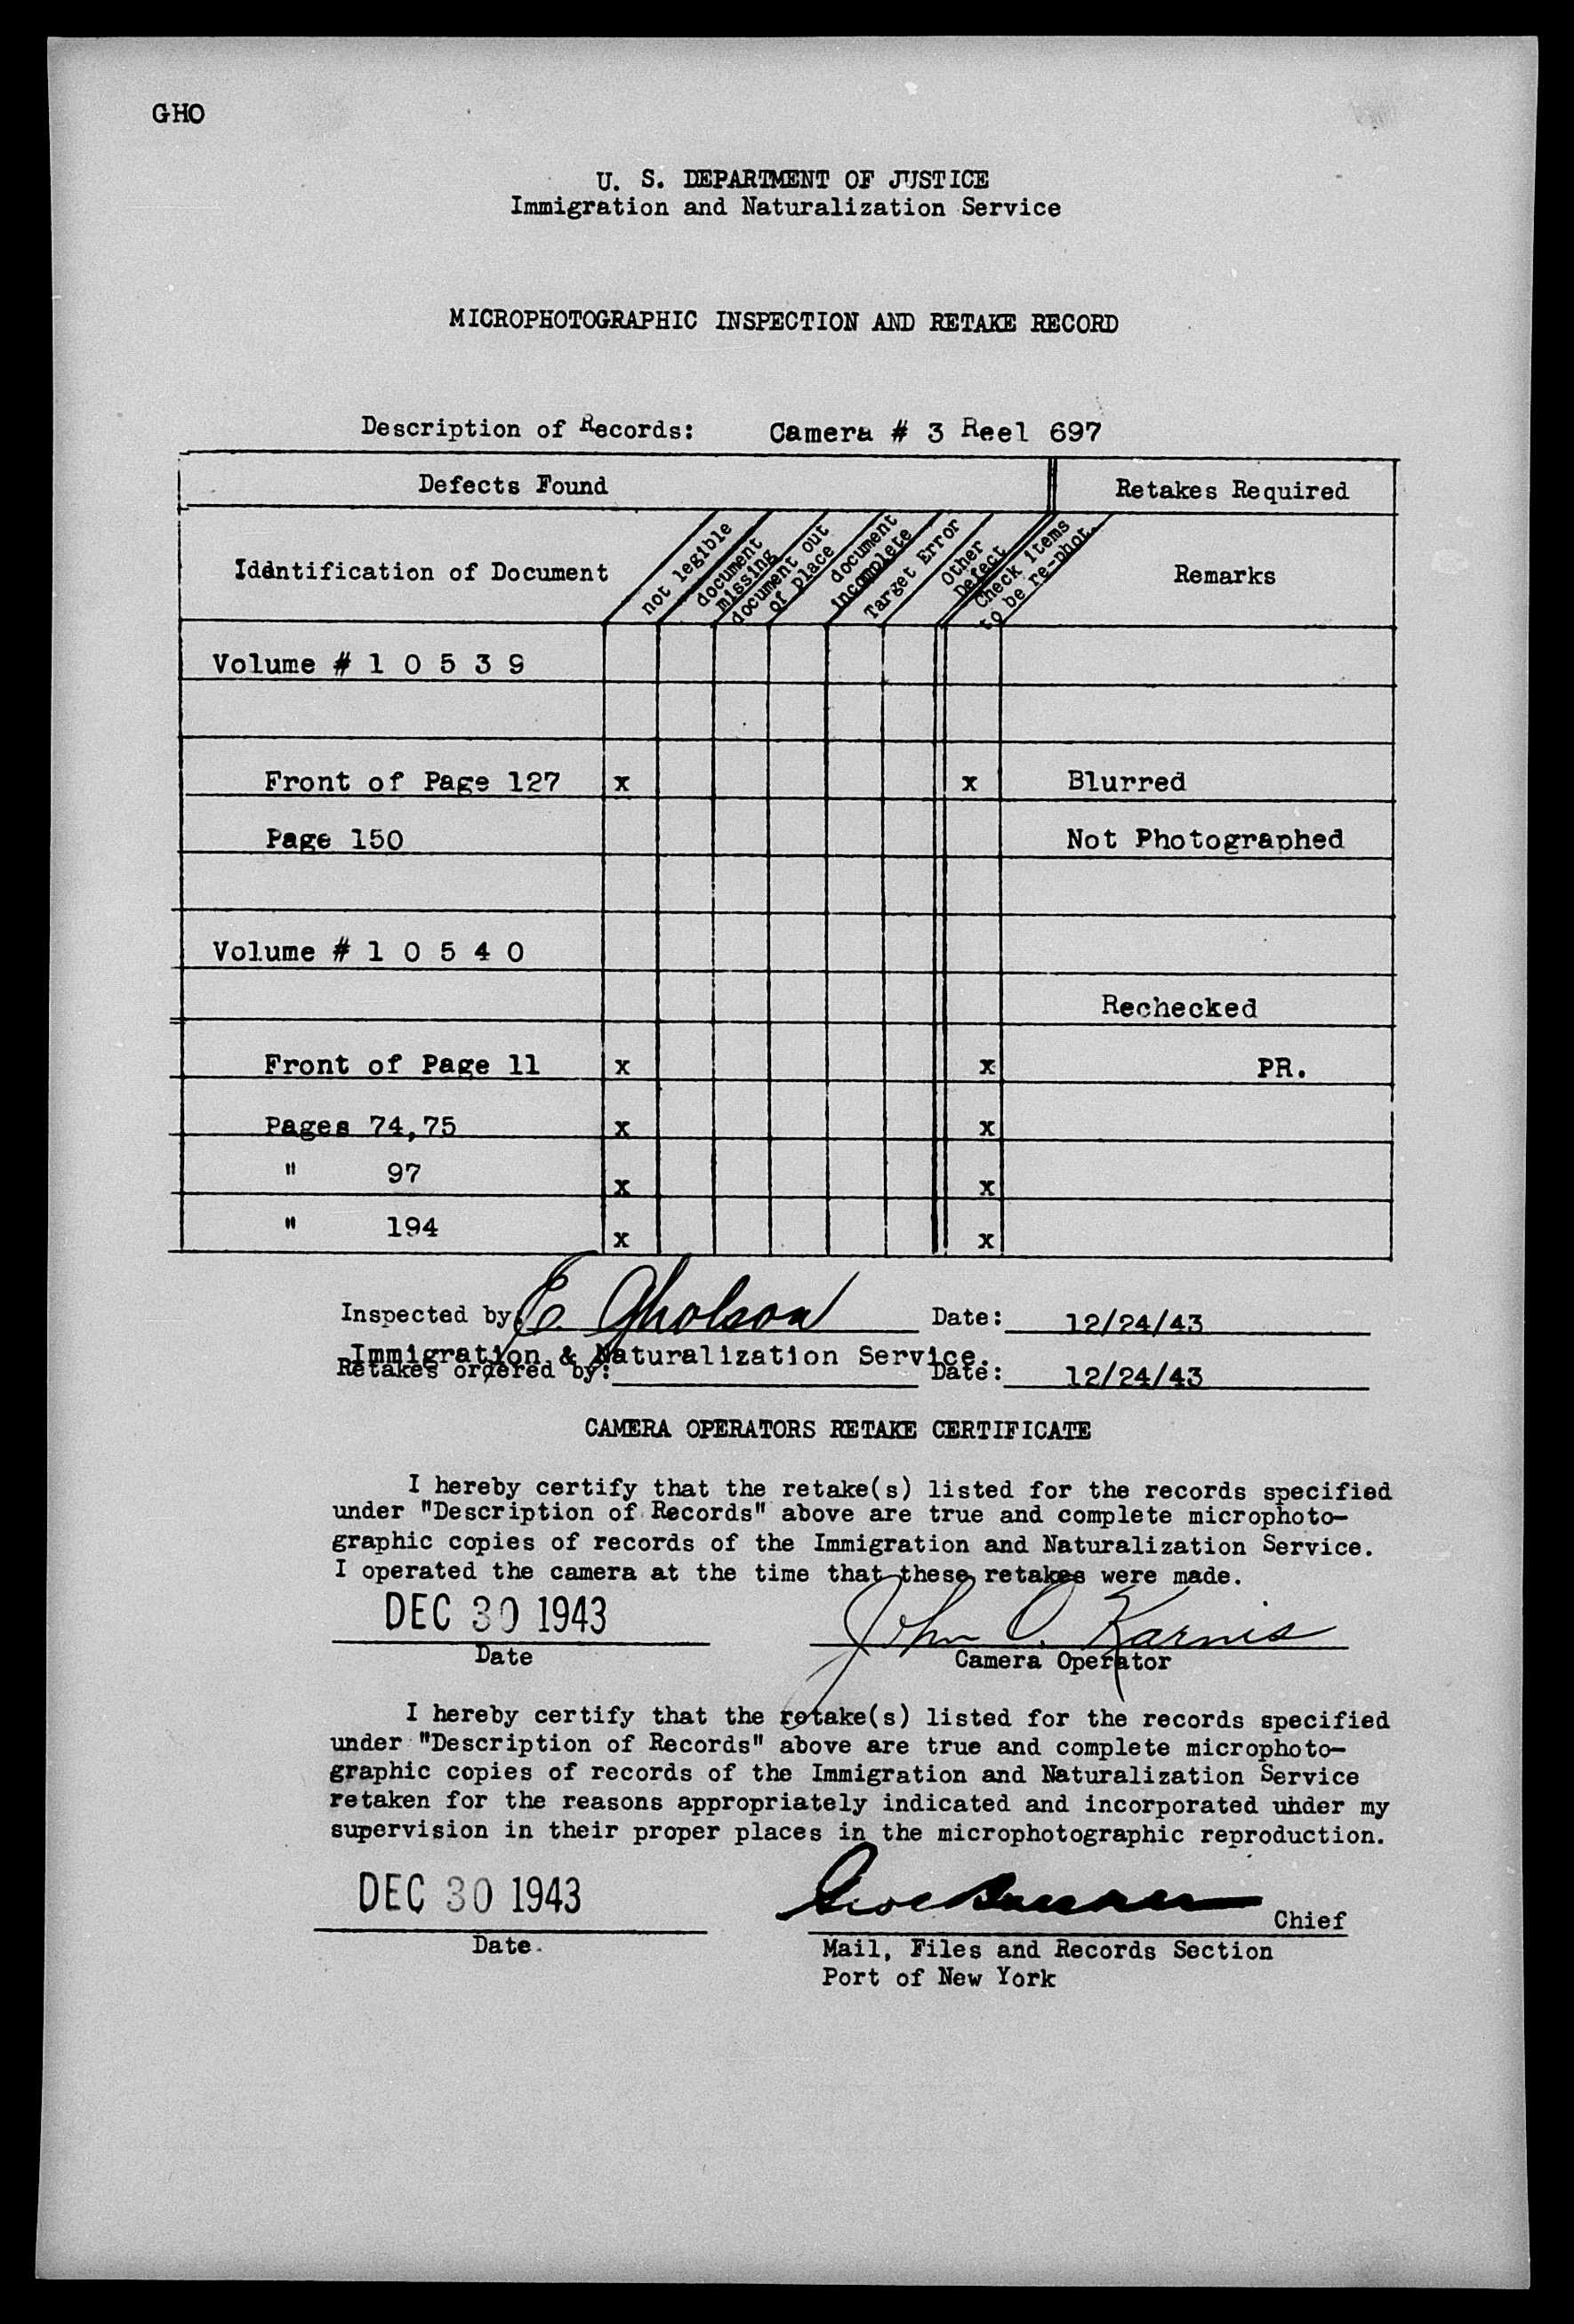 GHO
U. S. DEPARTMENT OF JUSTICE
Immigration and Naturalization Service
MICROPHOTOGRAPHIC INSPECTION AND RETAKE RECORD
Description of Records: Camera # 3 Reel 697
Defects Found Retakes Required
Identification of Document
not legible
document
missing
document out
of place
document
incomplete
Target Error
Other
Defect
Check items
to be re-phot.
Remarks
Volume # 1 0 5 3 9
Front of Page 127 x x Blurred
Page 150 Not Photographed
Volume # 1 0 5 4 0
Rechecked
Front of Page 11 x x PR.
Pages 74,75 x x
" 97 x x
" 194 x x
Inspected by: E. Gholson Date: 12/24/43
Immigration & Naturalization Service.
Retakes ordered by: Date: 12/24/43
CAMERA OPERATORS RETAKE CERTIFICATE
I hereby certify that the retake(s) listed for the records specified
under "Description of Records" above are true and complete microphoto-
graphic copies of records of the Immigration and Naturalization Service.
I operated the camera at the time that these retakes were made.
DEC 30 1943 John O. Karnis
Date Camera Operator
I hereby certify that the retake(s) listed for the records specified
under "Description of Records" above are true and complete microphoto-
graphic copies of records of the Immigration and Naturalization Service
retaken for the reasons appropriately indicated and incorporated under my
supervision in their proper places in the microphotographic reproduction.
DEC 30 1943
Chief
Date. Mail, Files and Records Section
Port of New York